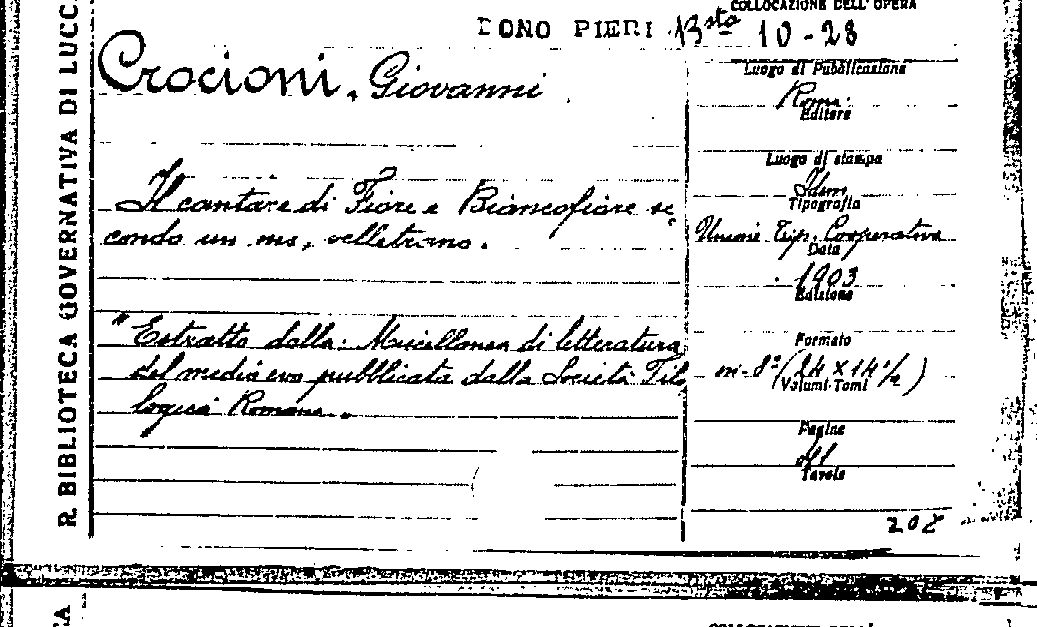 R. BIBLIOTECA GOVERNATIVA DI LUCCA
COLLOCAZIONE DELL'OPERA
DONO PIERI Bsta 10-28
Crocioni, Giovanni
Luogo di Pubblicazione
Roma
Editore
Luogo di stampa
Idem
Tipografia
Il cantare di Fiore e Biancofiore se
condo un ms. velletrano.
Unione Tip. Cooperativa
Data
1903
Edizione
"Estratto dalla: Miscellanea di letteratura
del medio evo pubblicata dalla Società Filo
logica Romana."
Formato
in-8° (24 x 14 ½)
Volumi-Tomi
Pagine
Tavole
208